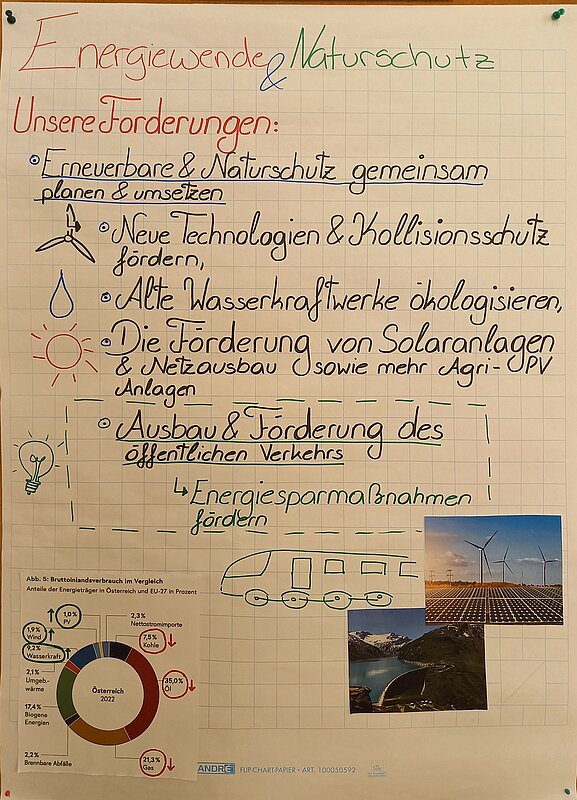 Energiewende & Naturschutz
Unsere Forderungen:
Erneuerbare & Naturschutz gemeinsam
planen & umsetzen
Neue Technologien & Kollisionsschutz
fördern,
Alte Wasserkraftwerke ökologisieren,
Die Förderung von Solaranlagen
& Netzausbau sowie mehr Agri-PV
Anlagen
Ausbau & Förderung des
öffentlichen Verkehrs
Energiesparmaßnahmen
fördern
Abb. 5: Bruttoinlandsverbrauch im Vergleich
Anteile der Energieträger in Österreich und EU-27 in Prozent
1,0%
PV
2,3%
Nettostromimporte
1,9%
Wind
7,5%
Kohle
9,2%
Wasserkraft
2,1%
Umgeb.-
wärme
35,0%
Öl
Österreich
2022
17,4%
Biogene
Energien
2,2%
Brennbare Abfälle
21,3%
Gas
ANDRE FLIP-CHART-PAPIER • ART. 100050592